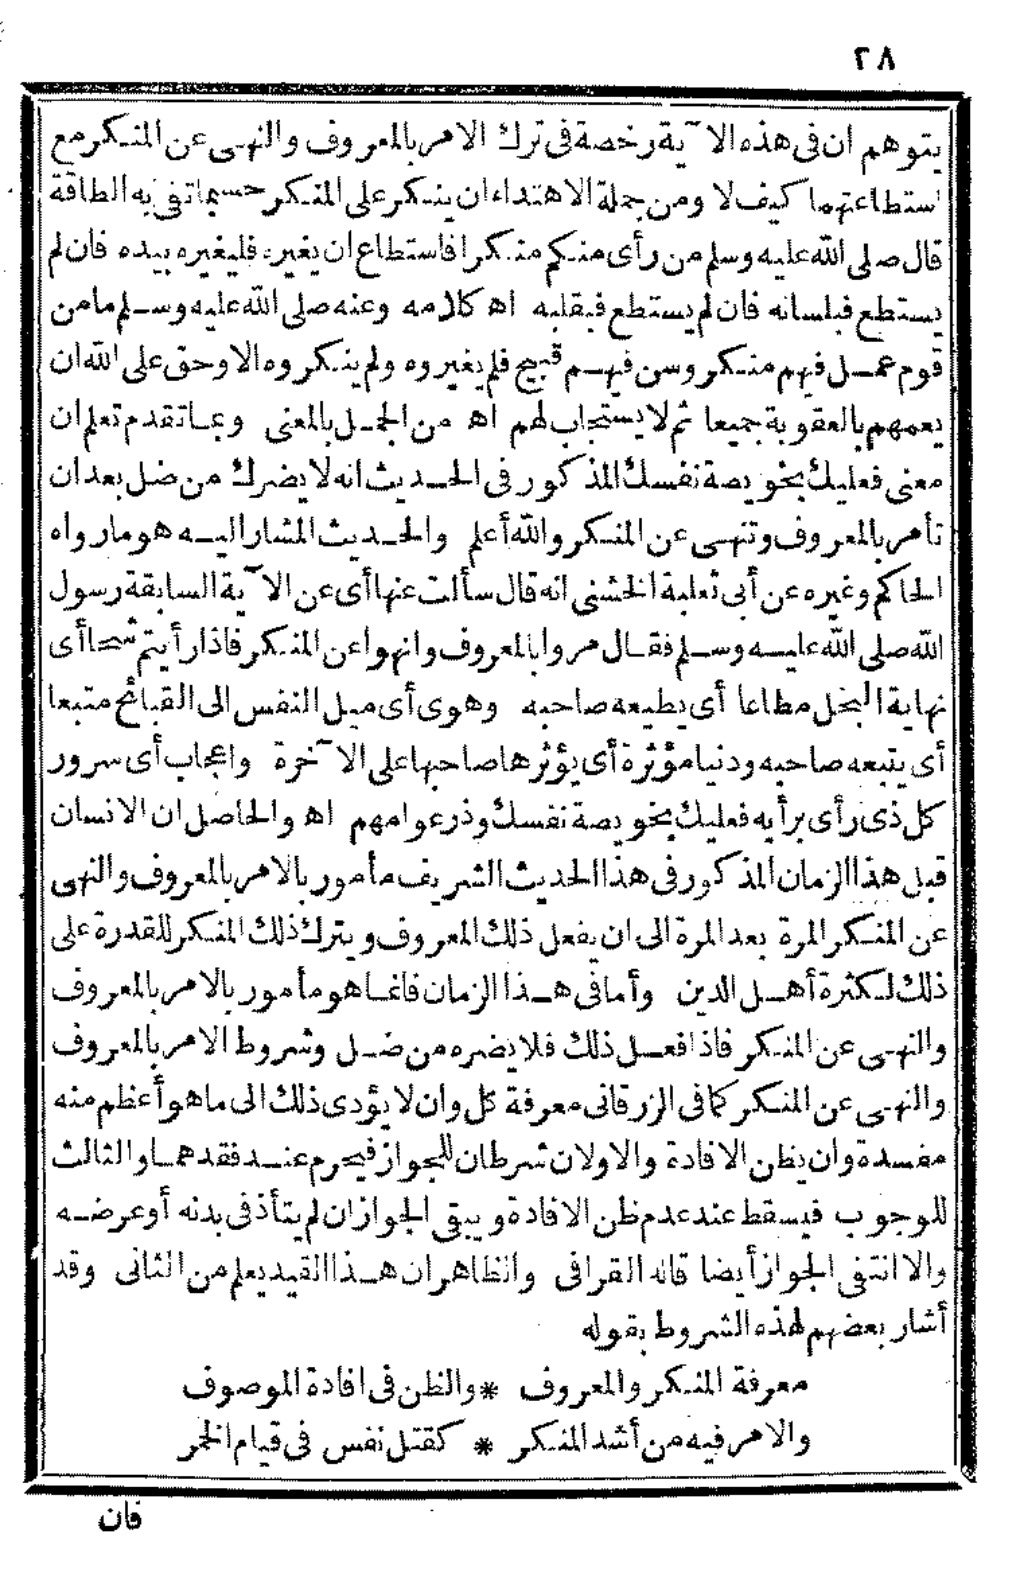 ٢٨
يتوهم ان فى هذه الآية رخصة فى ترك الامر بالمعروف والنهى عن المنكر مع
استطاعتهما كيف لا ومن جملة الاهتداء ان ينكر على المنكر حسبما تفى به الطاقة
قال صلى الله عليه وسلم من رأى منكم منكرا فاستطاع ان يغيره فليغيره بيده فان لم
يستطع فبلسانه فان لم يستطع فبقلبه اه كلامه وعنه صلى الله عليه وسلم مامن
قوم عمل فيهم منكر وسن فيهم قبيح فلم يغيروه ولم ينكروه الا وحق على الله ان
يعمهم بالعقوبة جميعا ثم لا يستجاب لهم اه من الجمل بالمعنى وبما تقدم تعلم ان
معنى فعليك بخويصة نفسك المذكور فى الحديث انه لا يضرك من ضل بعد ان
تأمر بالمعروف وتنهى عن المنكر والله أعلم والحديث المشار اليه هو مارواه
الحاكم وغيره عن أبى ثعلبة الخشنى انه قال سألت عنها أى عن الآية السابقة رسول
الله صلى الله عليه وسلم فقال مروا بالمعروف وانهوا عن المنكر فاذا رأيتم شحا أى
نهاية البخل مطاعا أى يطيعه صاحبه وهوى أى ميل النفس الى القبائح متبعا
أى يتبعه صاحبه ودنيا مؤثرة أى يؤثرها صاحبها على الآخرة واعجاب أى سرور
كل ذى رأى برأيه فعليك بخويصة نفسك وذر عوامهم اه والحاصل ان الانسان
قبل هذا الزمان المذكور فى هذا الحديث الشريف مأمور بالامر بالمعروف والنهى
عن المنكر المرة بعد المرة الى ان يفعل ذلك المعروف ويترك ذلك المنكر للقدرة على
ذلك لكثرة أهل الدين وأما فى هذا الزمان فانما هو مأمور بالامر بالمعروف
والنهى عن المنكر فاذا فعل ذلك فلا يضره من ضل وشروط الامر بالمعروف
والنهى عن المنكر كما فى الزرقانى معرفة كل وان لا يؤدى ذلك الى ما هو أعظم منه
مفسدة وان يظن الافادة والاولان شرطان للجواز فيحرم عند فقدهما والثالث
للوجوب فيسقط عند عدم ظن الافادة ويبقى الجواز ان لم يتأذ فى بدنه أو عرضه
والا انتفى الجواز أيضا قاله القرافى والظاهر ان هذا القيد يعلم من الثانى وقد
أشار بعضهم لهذه الشروط بقوله
معرفة المنكر والمعروف * والظن فى افادة الموصوف
والامر فيه من أشد المنكر * كقتل نفس فى قيام الخمر
فان